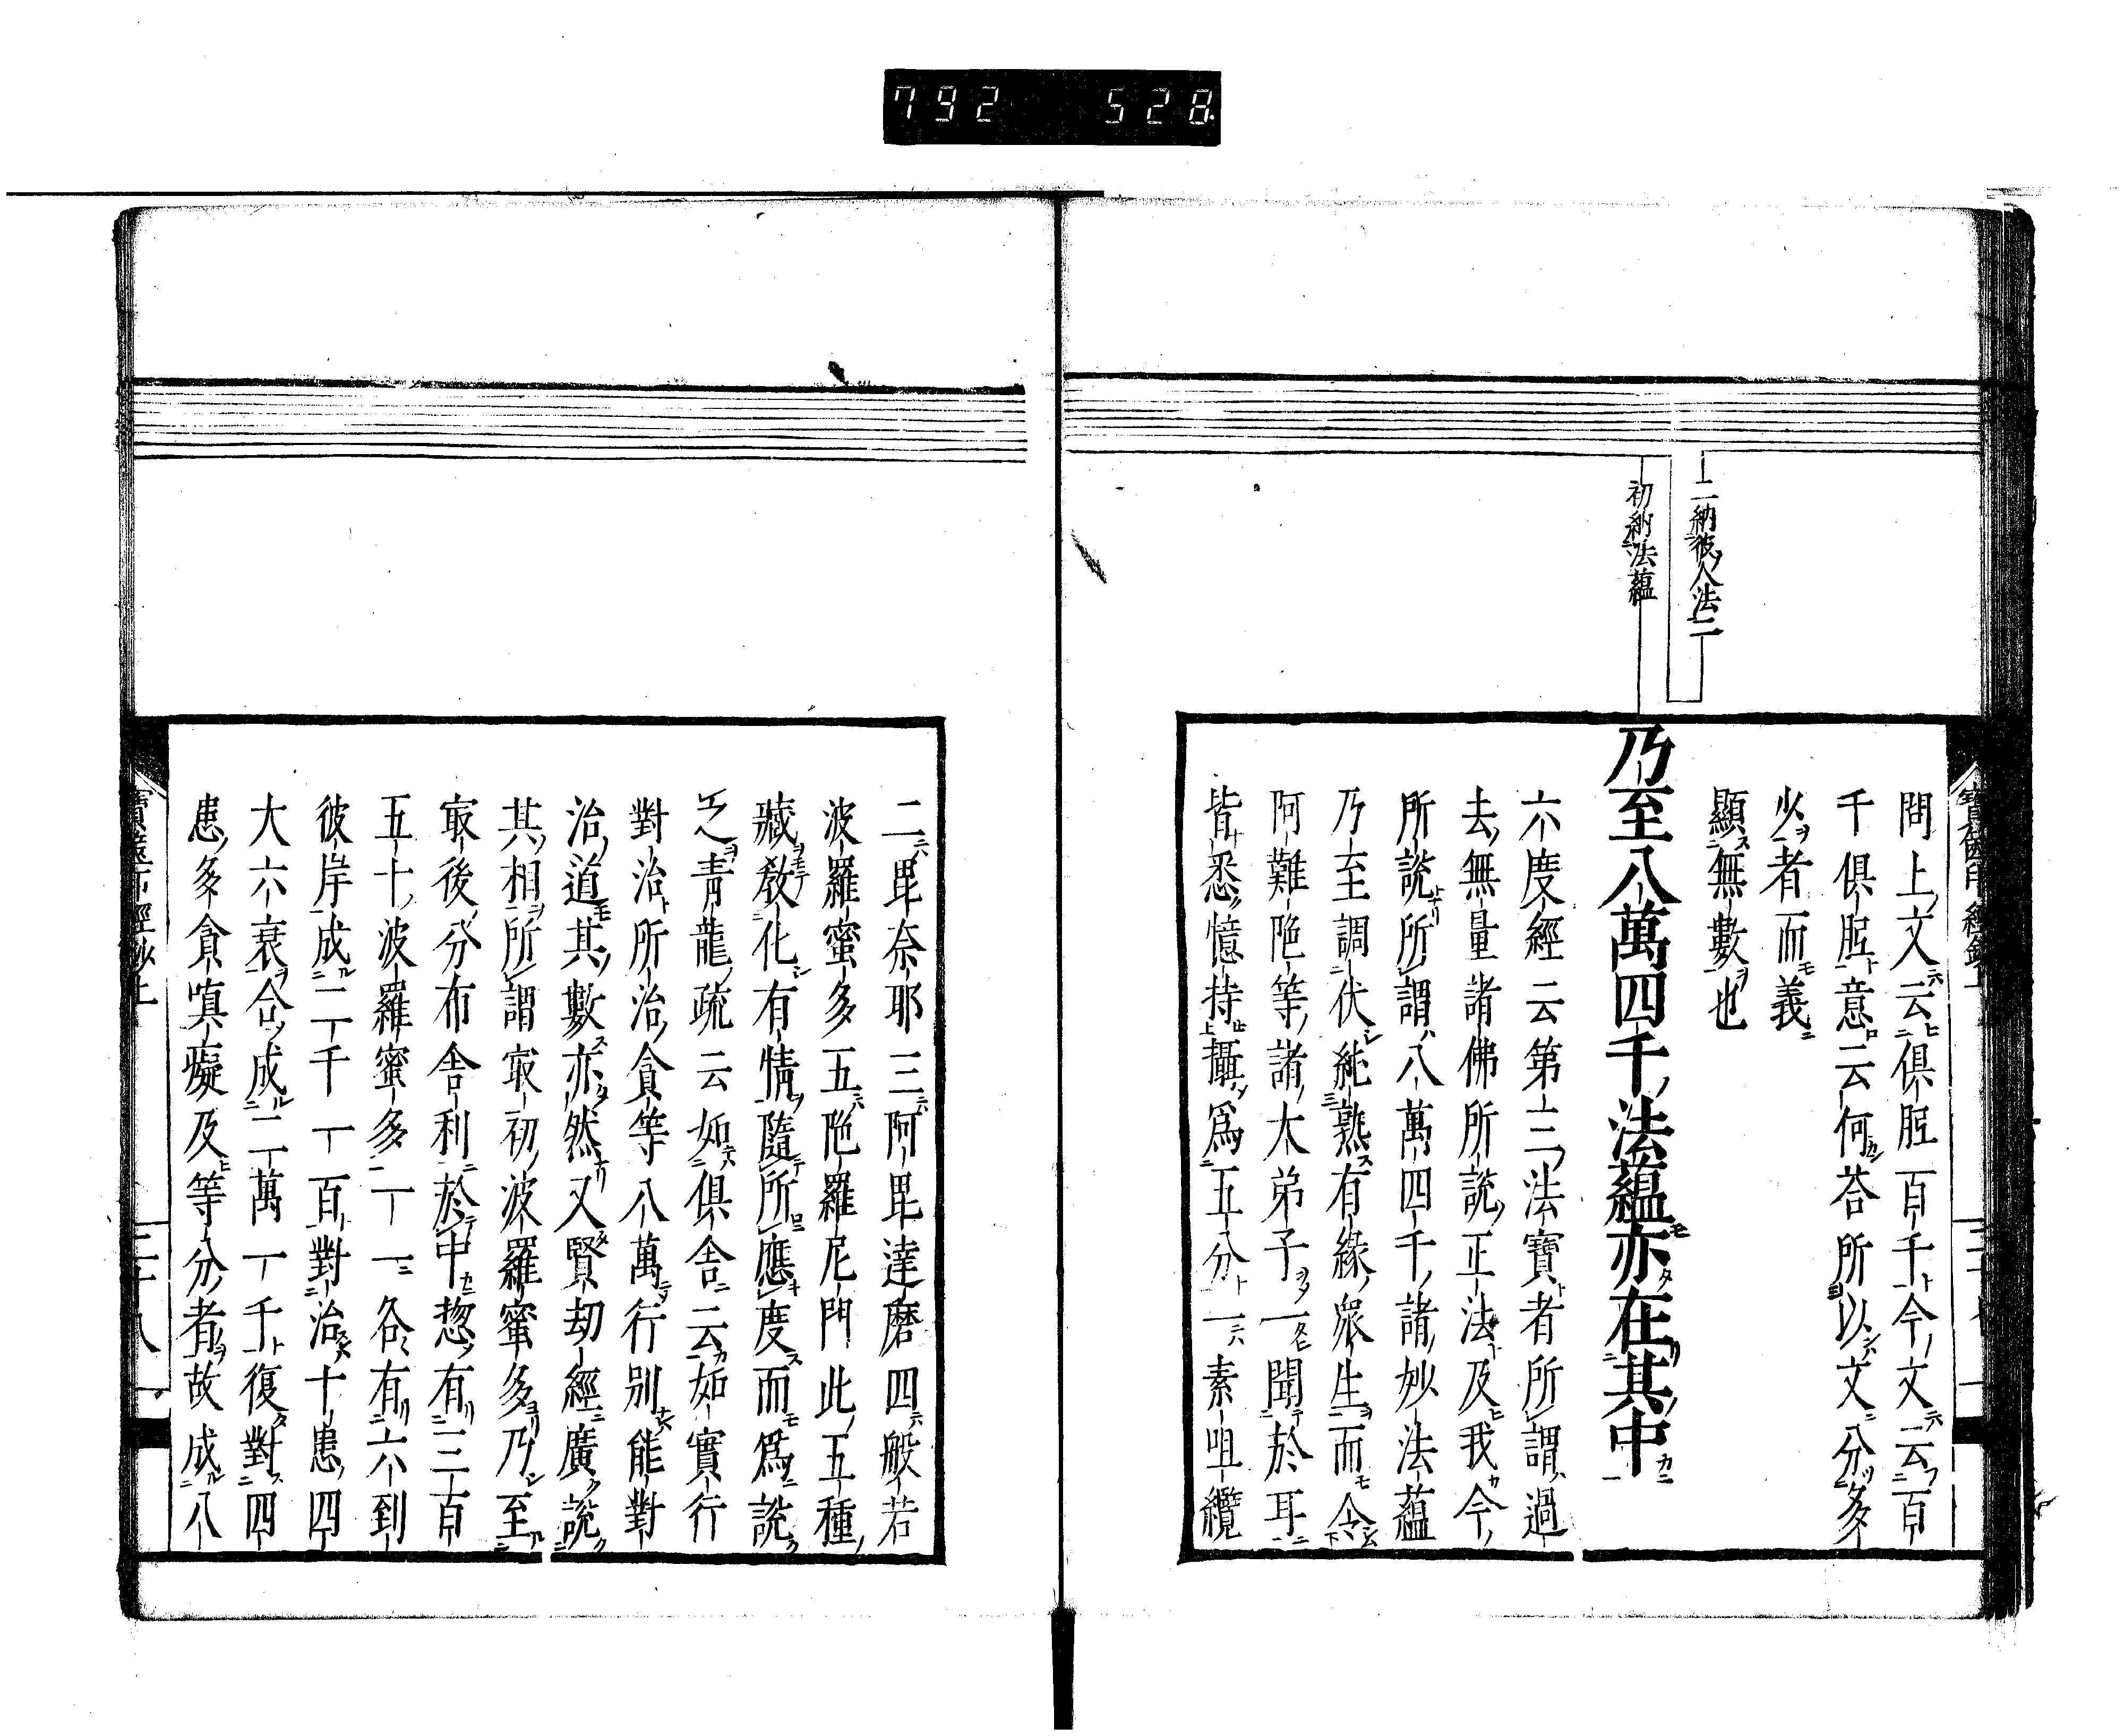 792 528
二納彼人法二
初納法蘊
問上文云俱胝百千今文云百
千俱胝意云何答所以文分多
少者而義
顯無數也
乃至八萬四千法蘊亦在其中
六度經云第三法寶者所謂過
去無量諸佛所說正法及我今
所說所謂八萬四千諸妙法蘊
乃至調伏純熟有緣衆生而令
阿難陁等諸大弟子一聞於耳
皆悉憶持攝爲五分一素呾纜
二毘奈耶三阿毘達磨四般若
波羅蜜多五陁羅尼門此五種
藏教化有情隨所應度而爲說
之青龍疏云如俱舍云如實行
對治所治貪等八萬行別能對
治道其數亦然又賢劫經廣說
其相所謂㝡初波羅蜜多乃至
㝡後分布舍利於中惣有三百
五十波羅蜜多一一各有六到
彼岸成二千一百對治十患四
大六衰合成二萬一千復對四
患多貪嗔癡及等分者故成八